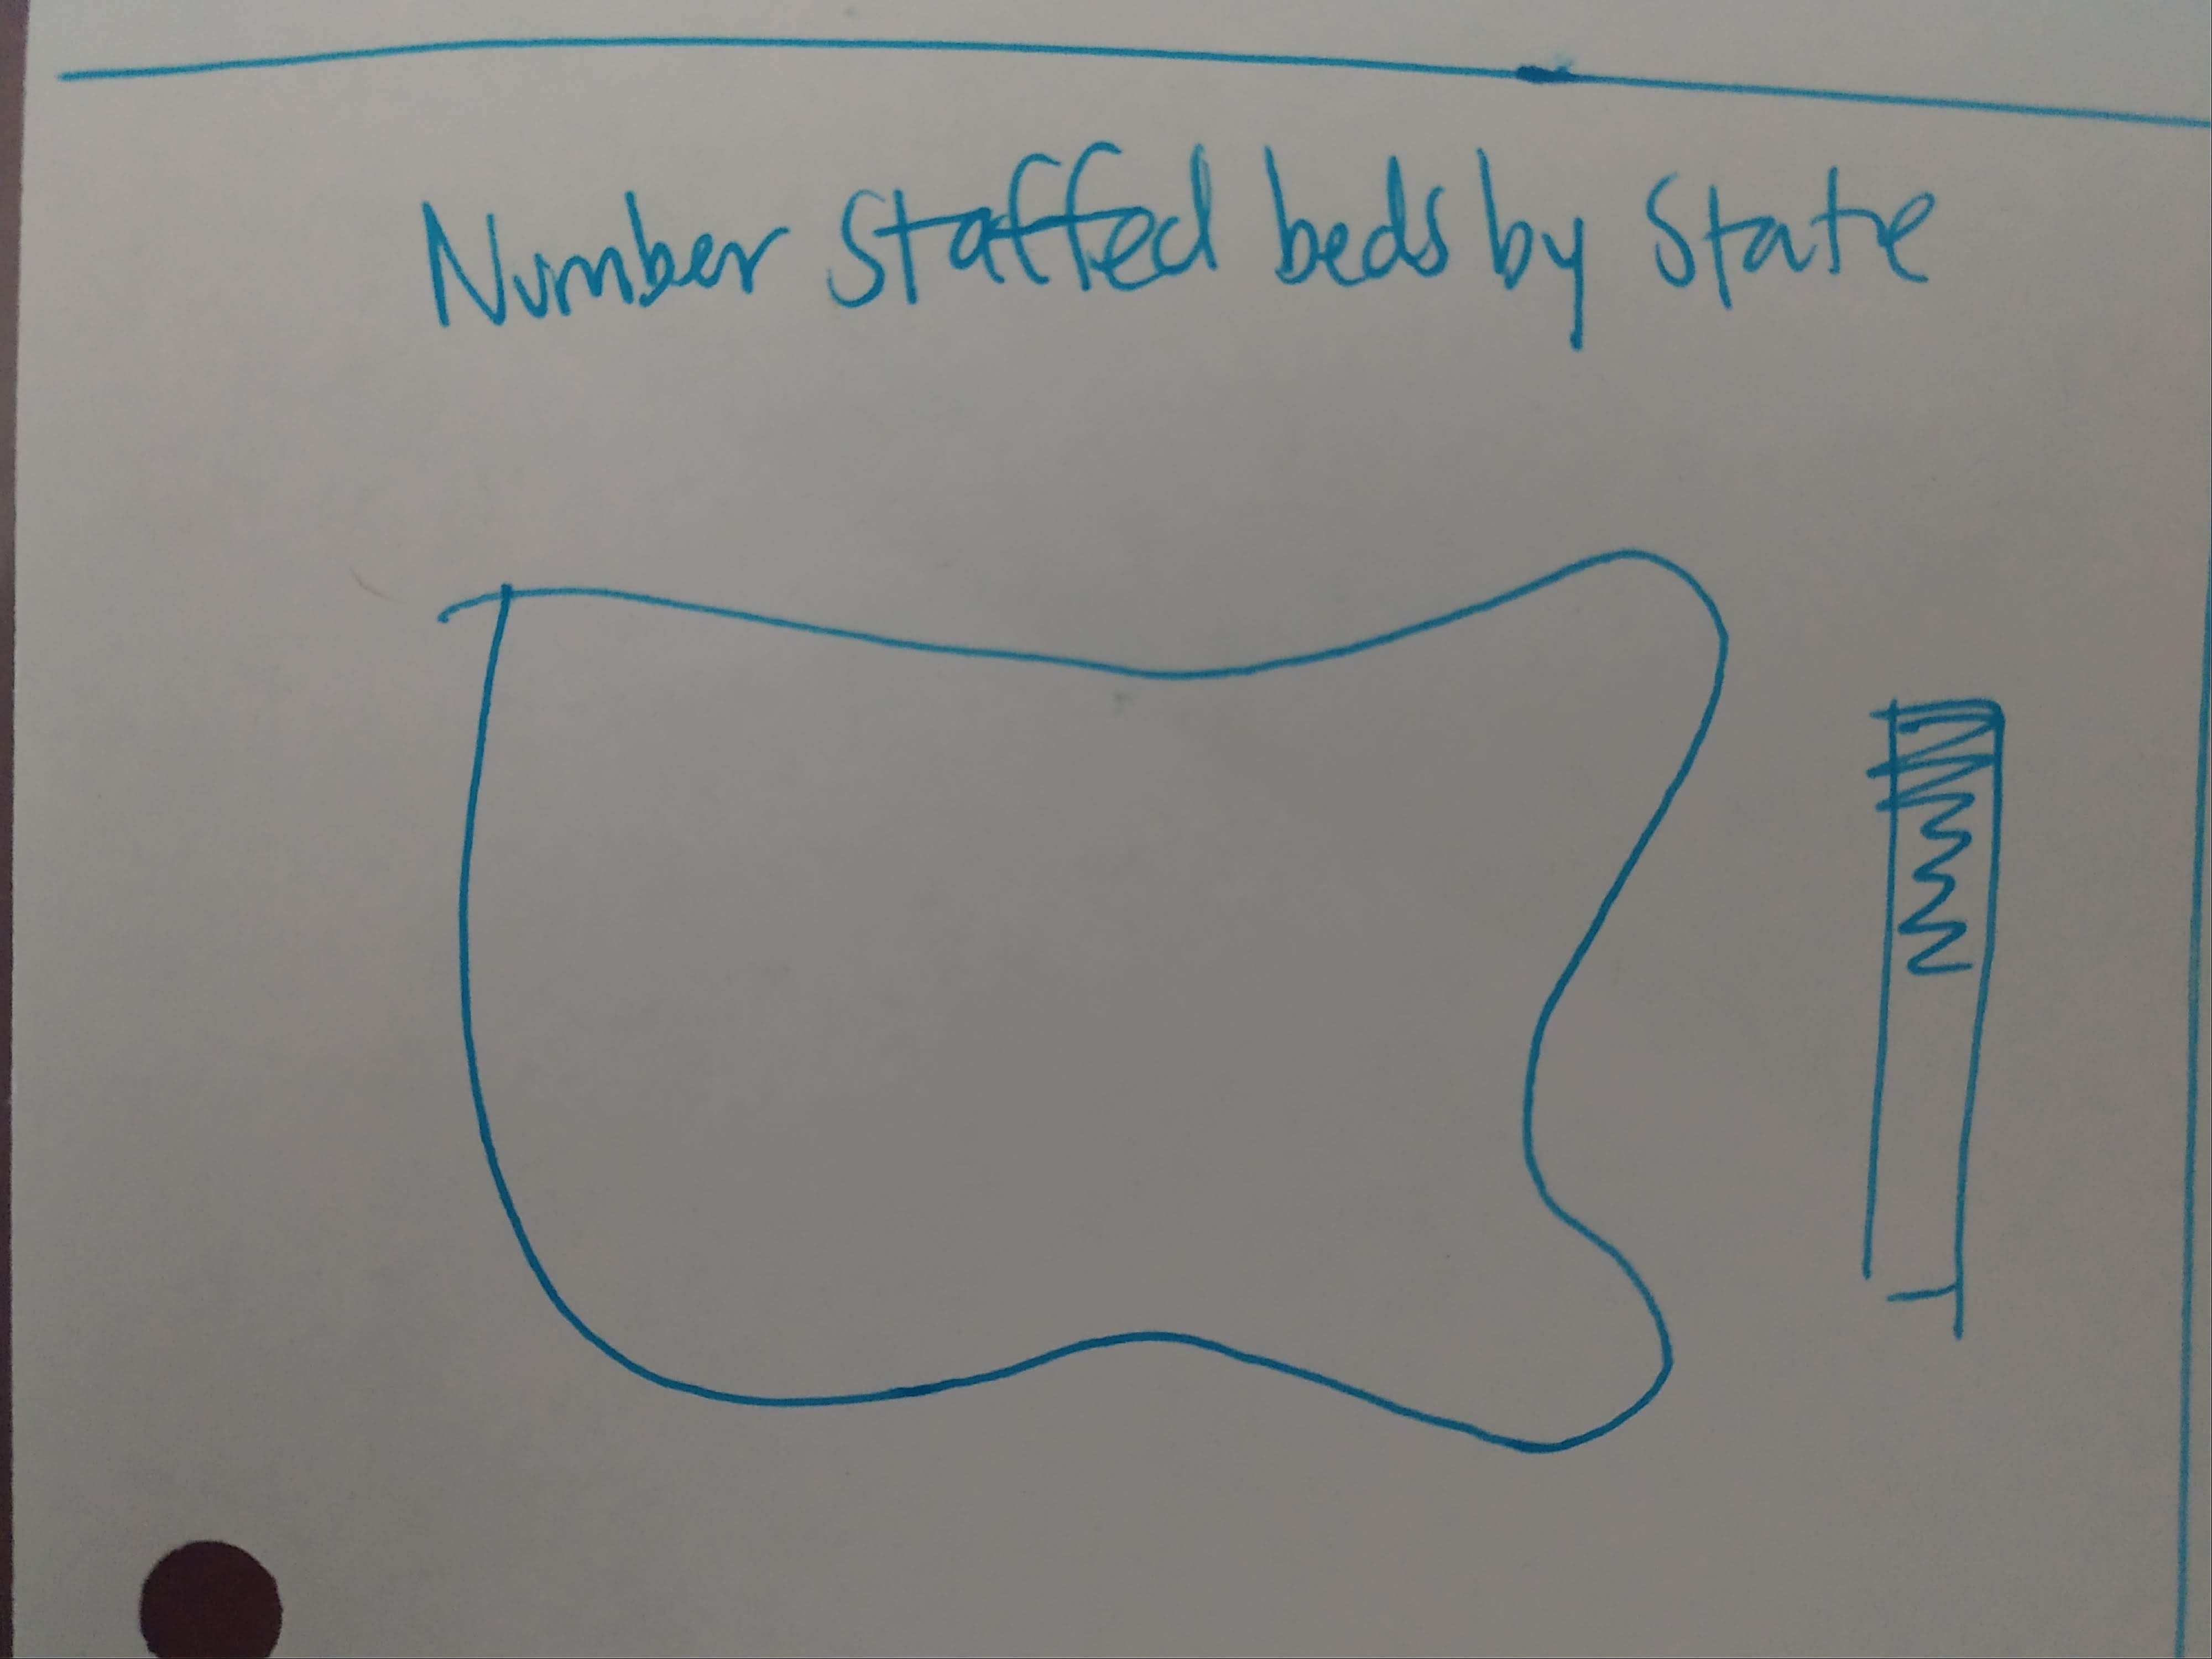 Number Staffed beds by State